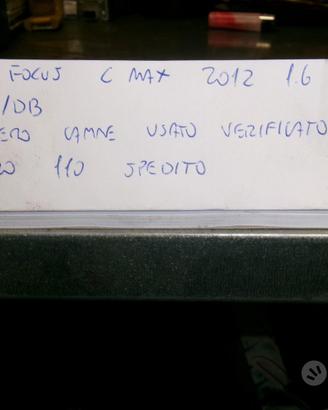 FOCUS C MAX 2012 1.6
/DB
ERO CAMME USATO VERIFICATO
110 SPEDITO